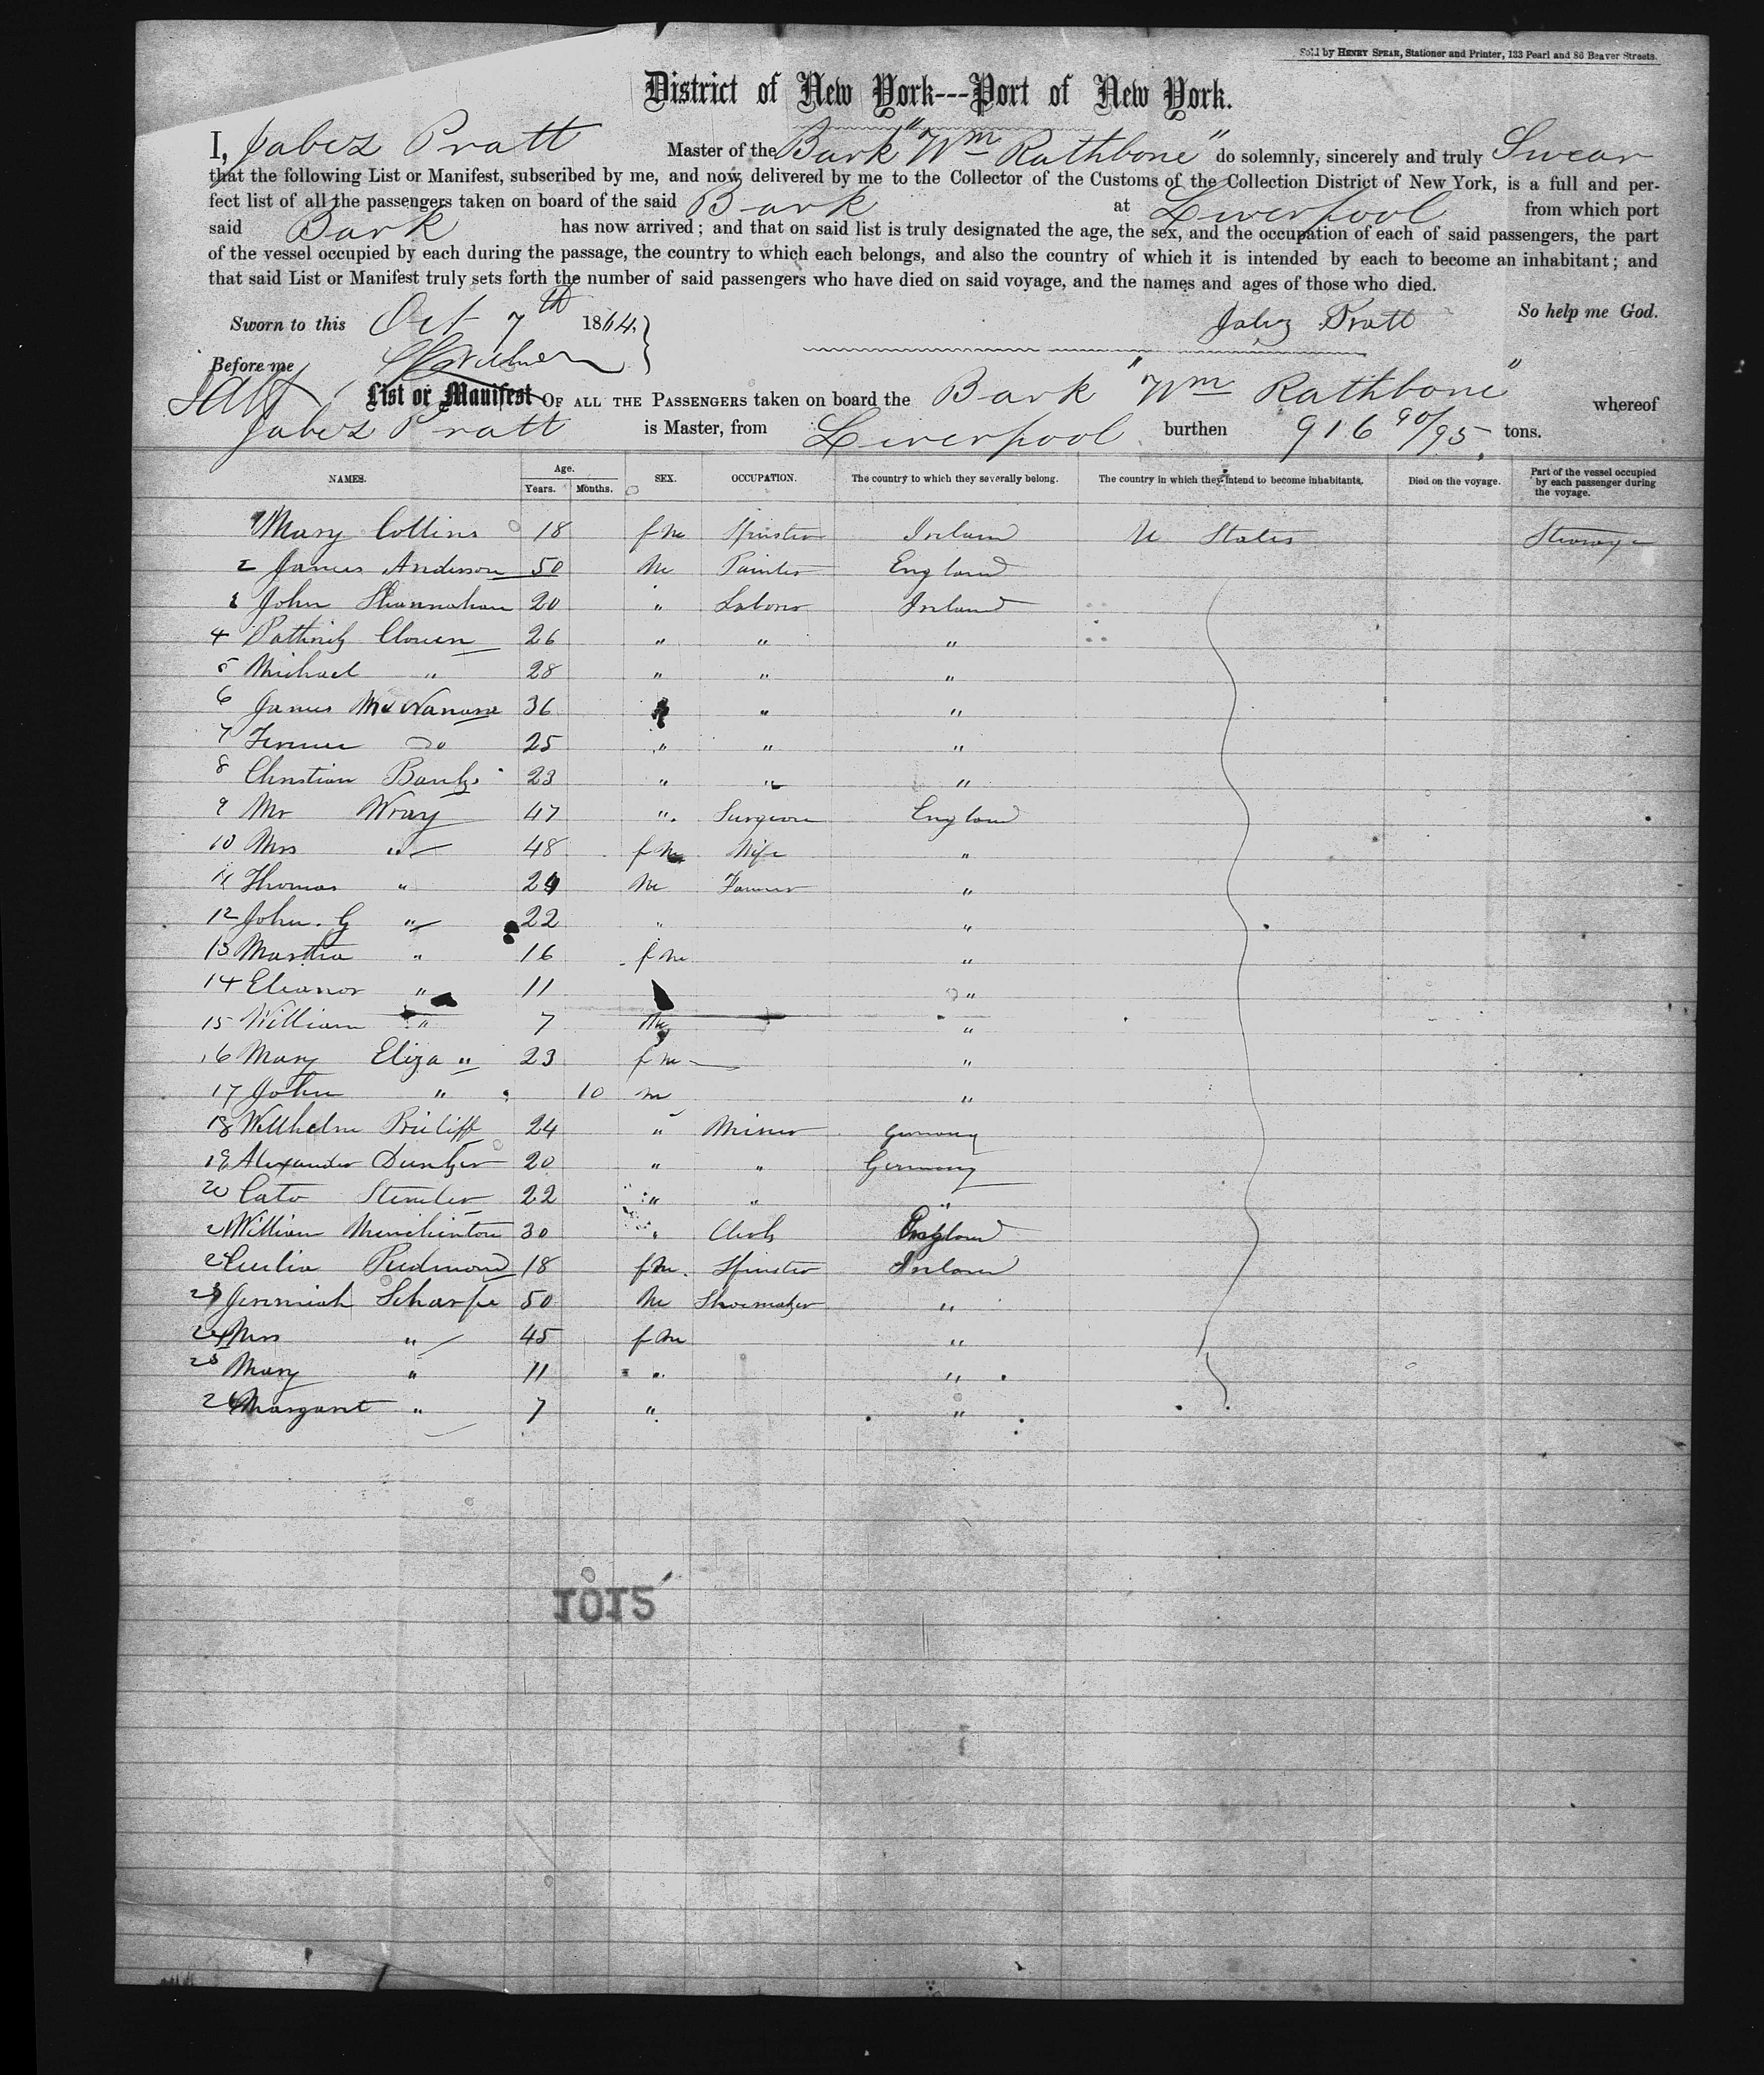 Sold by Henry Spear, Stationer and Printer, 133 Pearl and 86 Beaver Streets.
District of New York---Port of New York.
I, Jabez Pratt Master of the Bark "Wm Rathbone" do solemnly, sincerely and truly Swear
that the following List or Manifest, subscribed by me, and now delivered by me to the Collector of the Customs of the Collection District of New York, is a full and per-
fect list of all the passengers taken on board of the said Bark at Liverpool from which port
said Bark has now arrived; and that on said list is truly designated the age, the sex, and the occupation of each of said passengers, the part
of the vessel occupied by each during the passage, the country to which each belongs, and also the country of which it is intended by each to become an inhabitant; and
that said List or Manifest truly sets forth the number of said passengers who have died on said voyage, and the names and ages of those who died.
Sworn to this Oct 7th 1864. Jabez Pratt So help me God.
Before me
List or Manifest OF ALL THE PASSENGERS taken on board the Bark "Wm Rathbone" whereof
Jabez Pratt is Master, from Liverpool burthen 916 90/95 tons.
NAMES. Age. Years. Months. SEX. OCCUPATION. The country to which they severally belong. The country in which they intend to become inhabitants. Died on the voyage. Part of the vessel occupied by each passenger during the voyage.
1 Mary Collins 18 fm Spinster Ireland U States Steerage
2 James Anderson 50 m Painter England
3 John Shannahan 20 " Labour Ireland
4 Pattrick 26 " " "
5 Michael " 28 " " "
6 James 36 " "
7 do 25 " " "
8 Christian Banks 23 " " "
9 Mr Wray 47 " Surgeon England
10 Mrs " 48 fm Wife "
11 Thomas " 24 m Farmer "
12 John. G " 22 " "
13 Martha " 16 fm "
14 Eleanor " 11 "
15 William " 7 m "
16 Mary Eliza " 23 fm "
17 John " 10 m "
18 Willhelm 24 " Miner Germany
19 Alexander 20 " " Germany
20 Cato 22 " " "
21 William Minchinton 30 " Clerk England
22 Redmond 18 fm. Spinster Ireland
23 Jeremiah Scharpe 50 m Shoemaker "
24 Mrs " 45 fm "
25 Mary " 11 " "
26 Margaret " 7 " "
1015